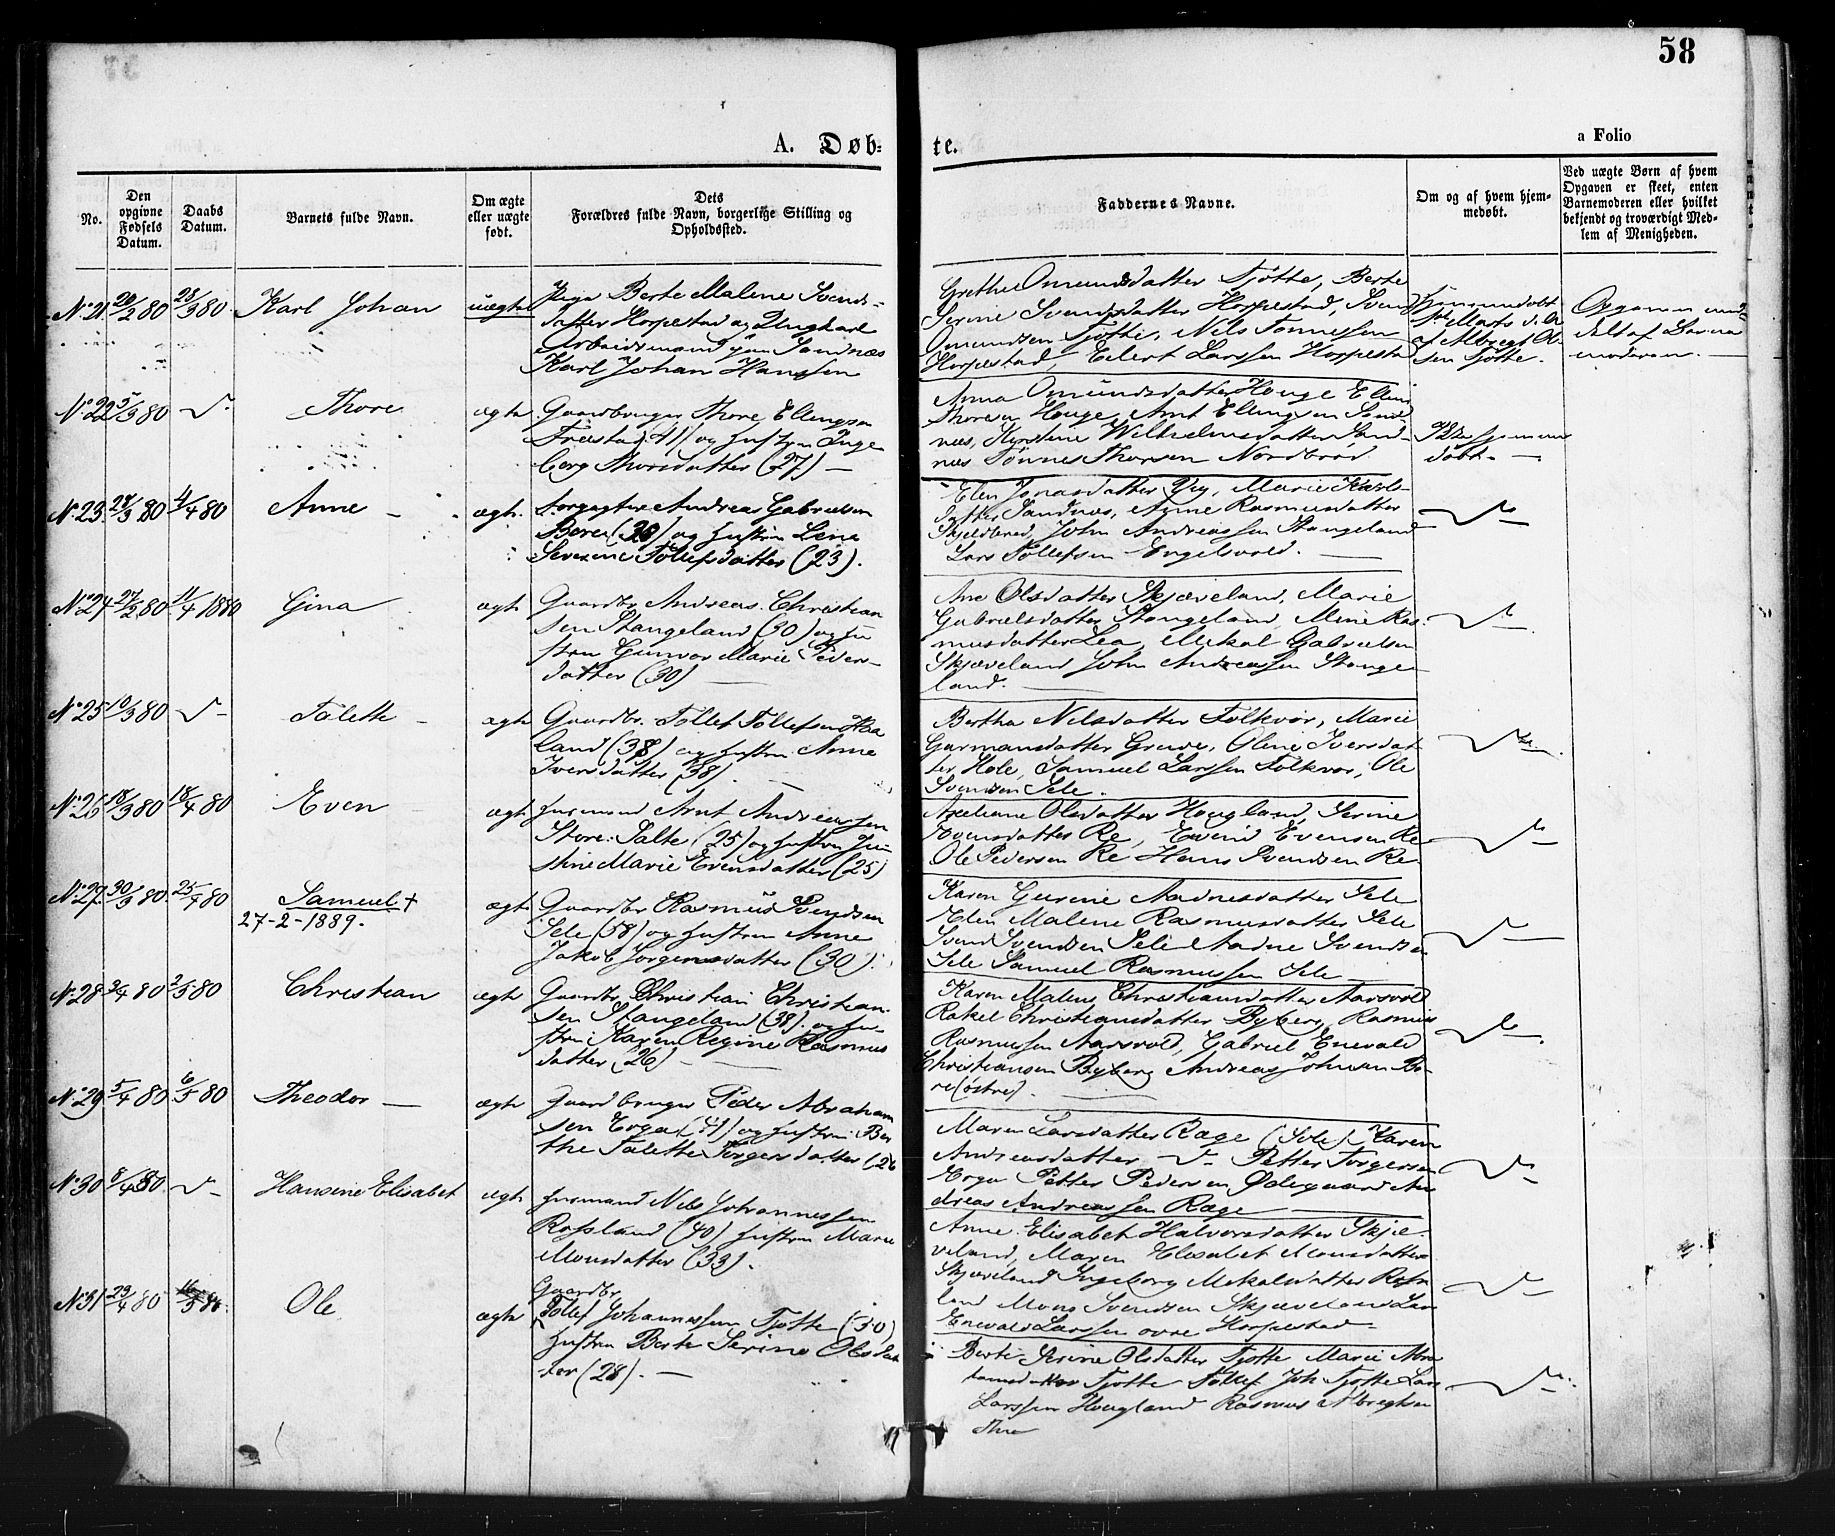 58
A. Døb-
te.
a Folio
No.
Den
opgivne
Fødsels
Datum.
Daabs
Datum.
Barnets fulde Navn.
Om ægte
eller uægte
født.
Dets
Forældres fulde Navn, borgerlige Stilling og
Opholdssted.
Faddernes Navne.
Om og af hvem hjem-
medøbt.
Ved uægte Børn af hvem
Opgaven er skeet, enten
Barnemoderen eller hvilket
bekjendt og troværdigt Med-
lem af Menigheden.
No 21 26/2 80 28/3 80 Karl Johan uægte
Pige Berte Malene Svends-
datter Horpestad og Ungkarl
Arbeidsmand Sandnæs
Karl Johan Hanssen
Grethe Omundsdatter Tjøtte, Berte
Serine Svendsdatter Horpestad, Svend
Omundsen Tjøtte, Nils Tønnessen
Horpestad, Eilert Larssen Horpestad
Hjemmedøbt
af Albregt Ol-
sen Tjøtte.
Opgaven med
delt af Barne
moderen.
No 22 5/3 80 Thore ægte
Gaardbruger Thore Ellingsen
Friestad (41) og Hustru Inge
borg Thorsdatter (27) —
Anna Omundsdatter Houge Elling
Thorsen Houge, Arnt Ellingsen Sand
næs, Kirstine Wilhelmsdatter Sand-
næs Tønnes Thorsen Nordbrød
Ikke hjemme
døbt. —
No 23 28/3 80 4/4 80 Anne — ægte.
Forpagter Andreas Gabrielsen
Bore (30) og Hustru Lene
Severine Tollefsdatter (23).
Elen Jonasdatter Vig, Marie Karls-
datter Sandnæs, Anne Rasmusdatter
Skjeldbred, John Andreassen Stangeland
Lars Tollefsen Engelsvold. —
No 24 27/2 80 11/4 1880 Gina ægte
Gaardbr. Andreas Christian
sen Stangeland (30) og Hu
stru Gunvor Marie Peder-
datter (30) —
Ane Olsdatter Skjæveland, Marie
Gabrielsdatter Stangeland, Mine Ras-
musdatter Lea, Mikal Gabrielsen
Skjæveland John Andreassen Stange-
land. —
No 25 10/3 80 Talette — ægte
Gaardbr. Tollef Tollefsen Haa
land (38) og Hustru Anne
Iversdatter (38). —
Bertha Nilsdatter Folkvor, Marie
Garmansdatter Grude, Oline Iversdat-
ter Hole, Samuel Larssen Folkvor, Ole
Svendsen Sele.
No 26 18/3 80 18/4 80 Even ægte
Husmand Arnt Andreassen
Store Salte (25) og Hustru Ju
stine Marie Evensdatter (25)
Axeliane Olsdatter Hougland, Serine
Evensdatter Re, Evend Evensen Re
Ole Pedersen Re Hans Svendsen Re
No 27 30/3 80 25/4 80 Samuel +
27-2-1889. ægte
Gaardbr Rasmus Svendsen
Sele (58) og Hustru Anne
Jakob Jorgensdatter (30).
Karen Gurine Aadnesdatter Sele
Elen Malene Rasmusdatter Sele
Svend Svendsen Sele Aadne Svendsen
Sele Samuel Rasmussen Sele —
No 28 3/4 80 2/5 80 Christian ægte
Gaardbr Christian Christian-
sen Stangeland (38). og Hu-
stru Karen Regine Rasmus
datter (26) —
Karen Malene Christiansdatter Aarsvold
Rakel Christiansdatter Byberg, Rasmus
Rasmussen Aarsvold, Gabriel Enevald
Christiansen Byberg Andreas Johnsen Bo-
re (østre). —
No 29 5/4 80 6/5 80 Theodor — ægte
Gaardbruger Peder Abraham
sen Erga (41) og Hustru Ber
the Talette Torgersdatter (26
Maren Larsdatter Rage (Sole) Karen
Andreasdatter Petter Torgersen
Erga Petter Pedersen Ødegaard An
dreas Andreassen Rage —
No 30 8/4 80. Hansine Elisabet ægte
Husmand Nils Johannessen
Rossland (40) Hustru Marie
Monsdatter (33).
Anne Elisabet Halvorsdatter Skjæ-
veland, Maren Elisabet Monsdatter
Skjæveland Ingeborg Mikalsdatter Ross
land Mons Svendsen Skjæveland Lars
Enevald Larssen øvre Horpestad
No 31 23/4 80 16/5 80. Ole ægte
Gaardbr.
Tollef Johannessen Tjøtte (30)
Hustru Berte Serine Olsdat
ter (28). —
Berte Serine Olsdatter Tjøtte Marie Abra
hamsdatter Tjøtte Tollef Joh Tjøtte Lars
Larssen Hougland Rasmus Albregtsen
Thu